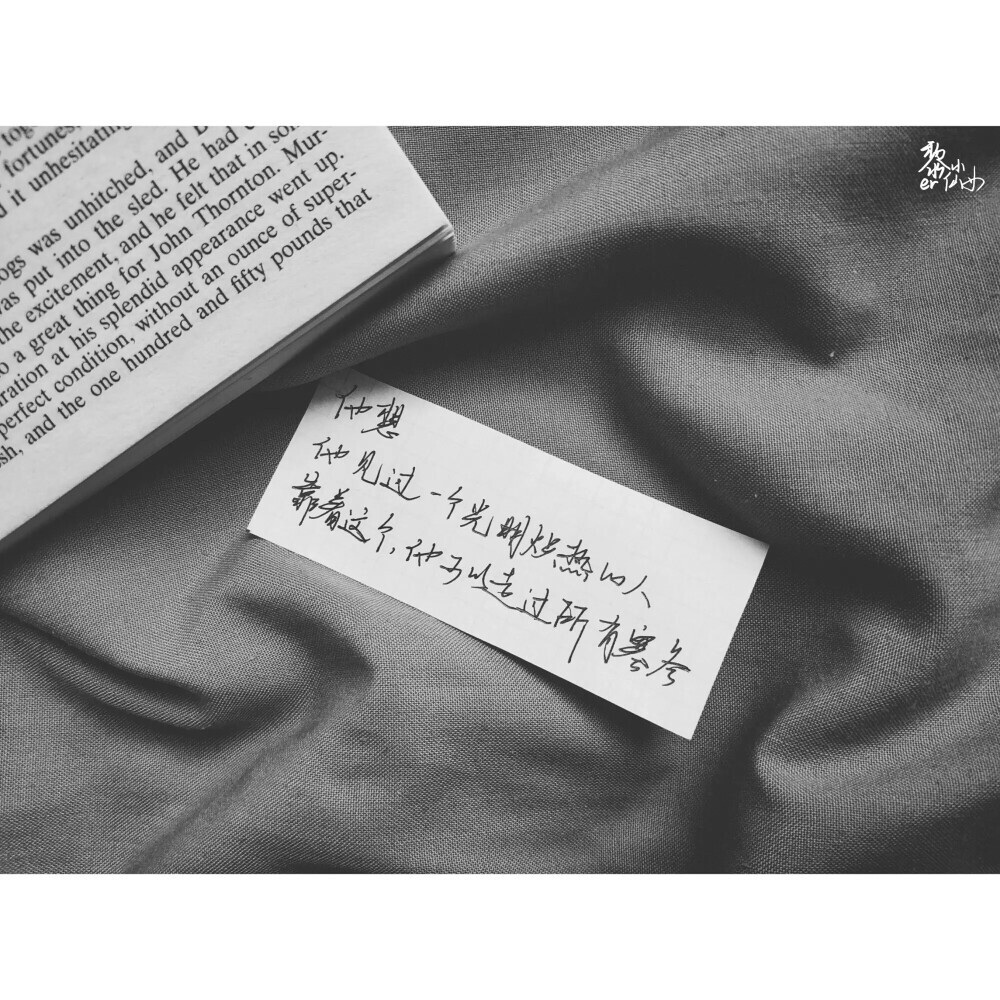 tog
fortunes,
d it unhesitating
ogs was unhitched, and B
was put into the sled. He had c
he excitement, and he felt that in som
o a great thing for John Thornton. Mur-
ration at his splendid appearance went up.
perfect condition, without an ounce of super-
sh, and the one hundred and fifty pounds that
他想
他见过一个光明炽热的人
靠着这个,他可以走过所有寒冬
黎小
er仙女